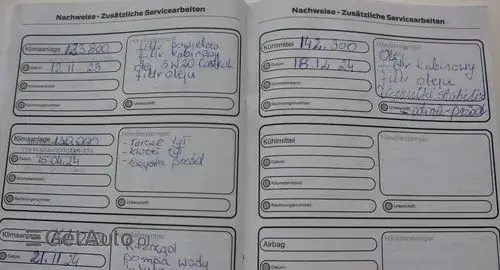 Nachweise - Zusätzliche Servicearbeiten
Klimaanlage 123.800
Datum 12.11 23
Kilometerstand
Rechnungsnummer
Händlerstempel
filtr powietrza
filtr kabinowy
olej 5W20 Castrol
filtr oleju
Unterschrift
Klimaanlage 130.000
Datum 25.04.24
Kilometerstand
Rechnungsnummer
Händlerstempel
- Tarcze tył
- klocki tył
- łożyska przód
Unterschrift
Klimaanlage
Datum 21.11 24
Händlerstempel
pompa wody
GetAuto.pl
Nachweise - Zusätzliche Servicearbeiten
Kühlmittel 142.300
Datum 18.12.24
Kilometerstand
Rechnungsnummer
Händlerstempel
Olej
filtr kabinowy
filtr oleju
Unterschrift
Kühlmittel
Datum
Kilometerstand
Rechnungsnummer
Händlerstempel
Unterschrift
Airbag
Datum
Händlerstempel